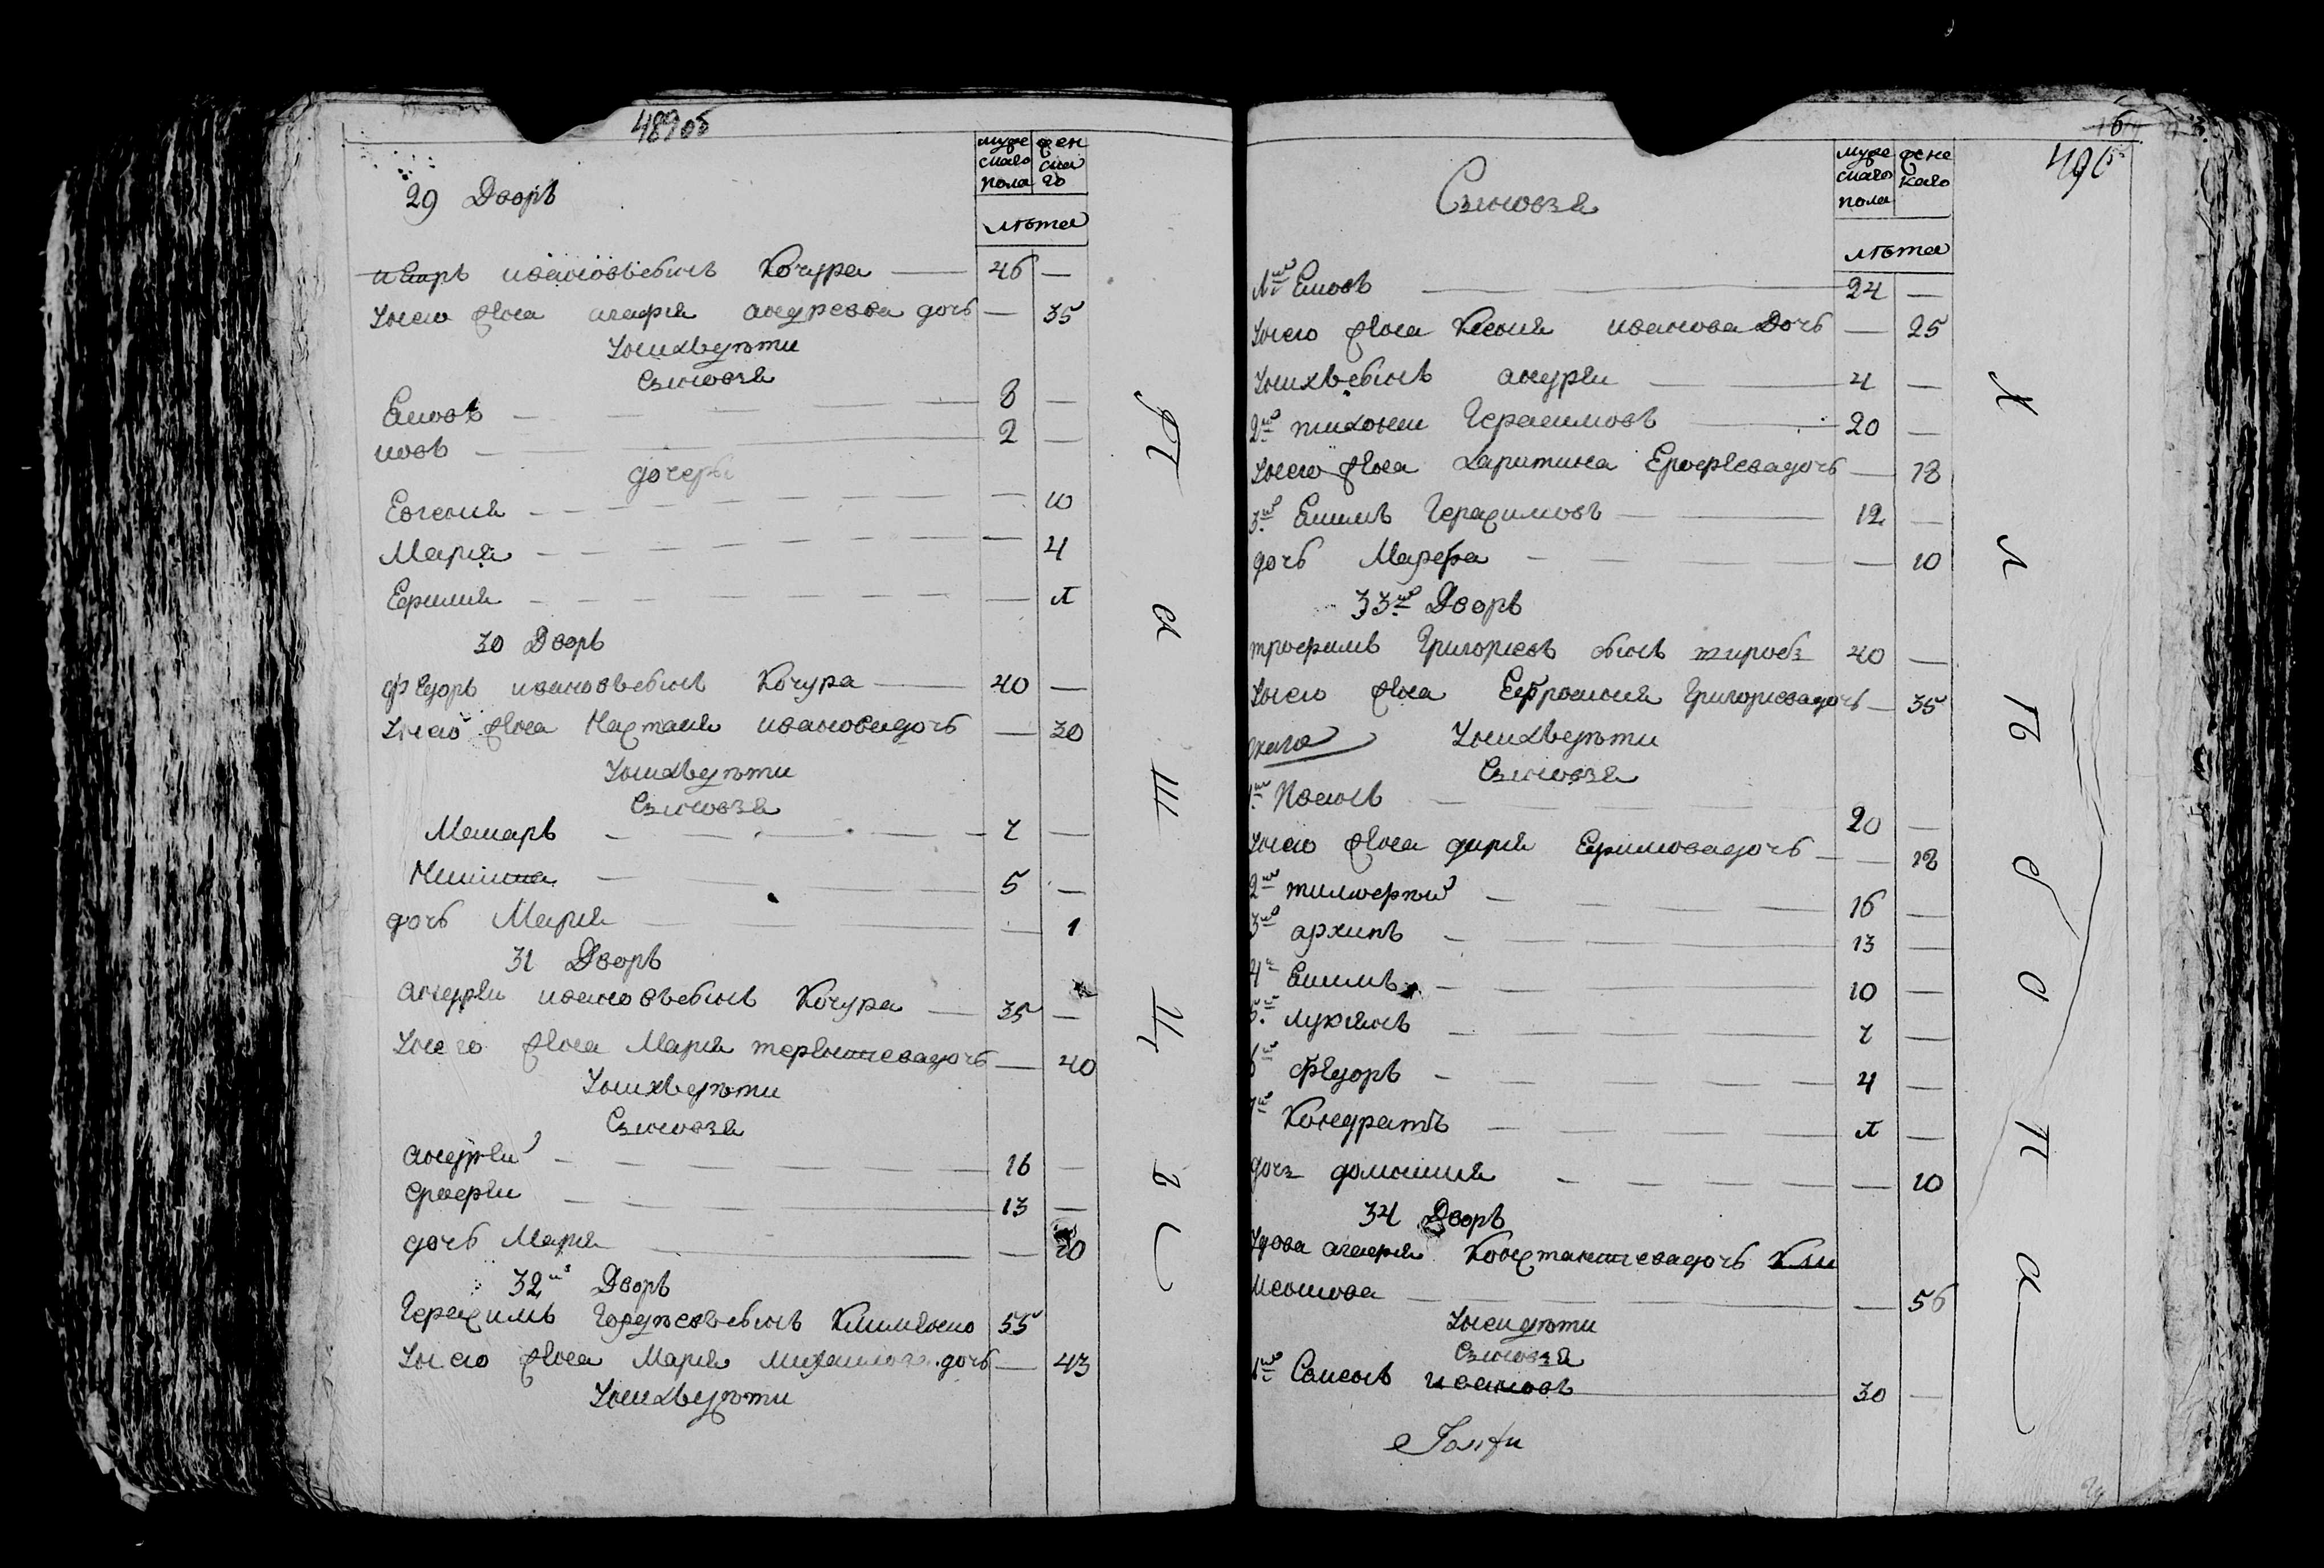 489об
муже
скаго
пола
жен
ска
го
лѣта
29 Дворъ
ивановъсынъ Кочура — 46 —
Унего жона агафия андреева дочъ — 35
Унихъдѣти
Сынове
Яковъ — 8 —
иовъ — 2 —
дочери
Евгения — 10
Мария — 4
Ефимия — л
30 Дворъ
Федоръ ивановъсынъ Кочура — 40 —
Унего жона Настасия ивановадочъ — 30
Унихъдѣти
Сынове
Макаръ — 7 —
Никита — 5 —
дочъ Мария — 1
31 Дворъ
андрѣи ивановъсынъ Кочура — 35 —
Унего жона Мария терентиевадочъ — 40
Унихъдѣти
Сынове
андрѣй — 16 —
13 —
дочъ Мария — 10
32й Дворъ
Герасимъ сынъ 55
Унего жона Мария михаилова дочъ — 43
Унихъдѣти
Р а ш ц
490
муже
скаго
пола
жене
каго
лѣта
Сынове
1й Яковъ — 24 —
Унего жона Ксения иванова Дочъ — 25
Унихъсынъ андрѣи — 4 —
2й тихони Герасимовъ — 20 —
Унего жона харитина Ерофѣевадочъ — 18
3й Якимъ Герасимовъ — 12 —
дочъ Марфа — 10
33й Дворъ
трофимъ Григориевъ сынъ 40 —
Унего жона Ефросиния Григориевадочъ — 35
Унихъдѣти
Сынове
1й Иванъ — 20 —
Унего жона дария Ефимовадочъ — 18
2й тимофѣй — 16 —
3й архипъ — 13 —
4й Якимъ — 10 —
5й лукиянъ — 7 —
6й Федоръ — 4 —
7й Кондратъ — л —
дочъ домникия — 10
34 Дворъ
Удова агафия Константиевадочъ Кли
менкова — 56
Унеидѣти
Сынове
1й Самсонъ ивановъ — 30 —
Х л ѣ б о п а